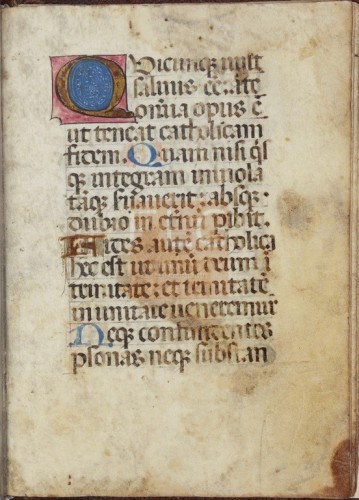 Quicunque vult
salvus ee ante
omnia opus e
ut teneat catholicam
fidem. Quam nisi qs
q integram inviola
taq svaverit: absq
dubio in etnu pibit.
Fides aute catholica
hec est ut unu deum i
trinitate: et trinitate
in unitate veneremur
Neq confundentes
psonas neq substan